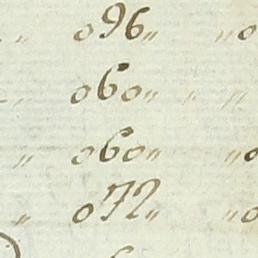 „ 096„ „0
„ 060„ „ „
„ 060„ „0
„ 072„ „0